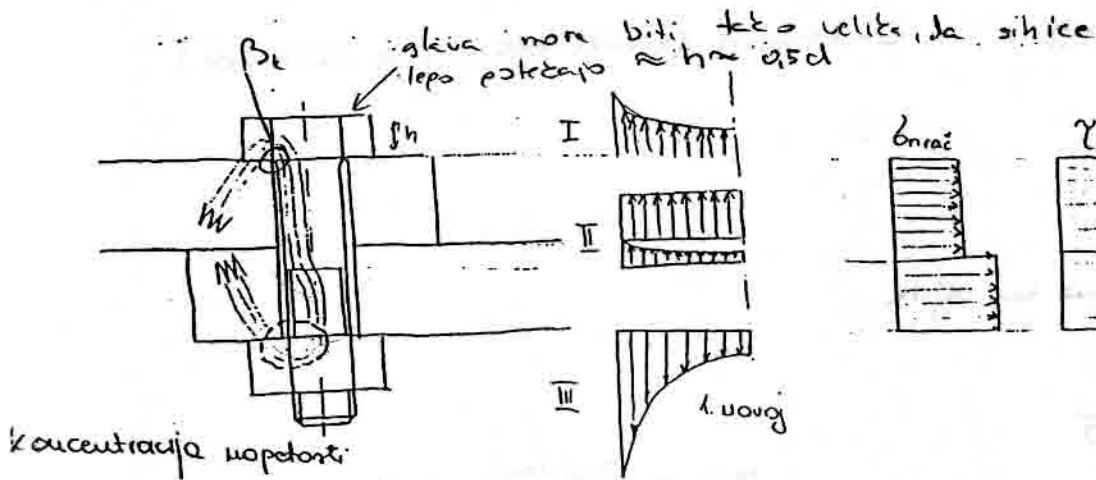 glava mora biti tako velika, da silnice
lepo potekajo ≈ h ≈ 0,5d
βk
h
I
σnrač
τ
II
III
1. navoj
koncentracija napetosti